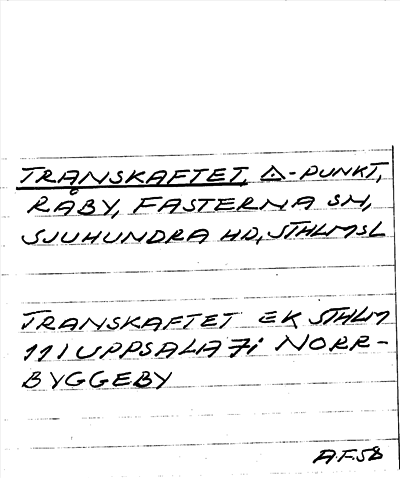 TRANSKAFTET, △-PUNKT,
RÅBY, FASTERNA SN,
SJUHUNDRA HD, STHLMSL
TRANSKAFTET EK STHLM
111 UPPSALA 7i NORR-
BYGGEBY
AF.58